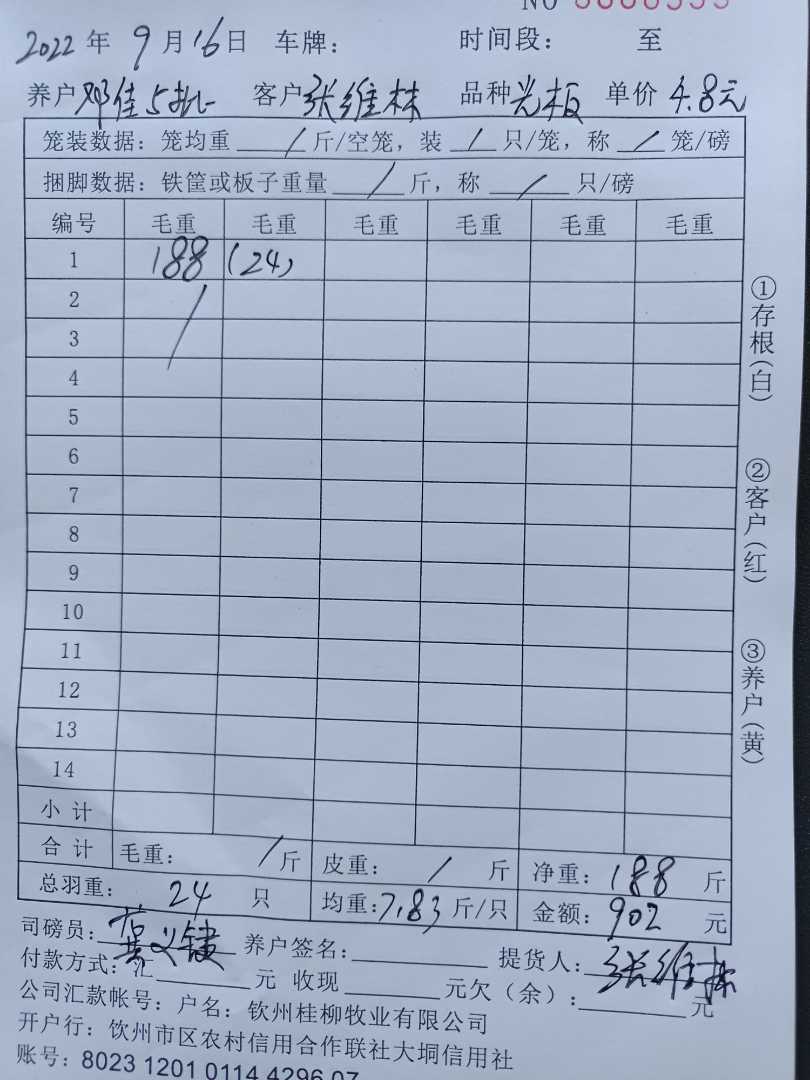 NO
2022 年 9 月 16 日 车牌： 时间段： 至
养户 邓佳5批 客户 张维林 品种 光板 单价 4.8元
笼装数据：笼均重 / 斤/空笼，装 / 只/笼，称 / 笼/磅
捆脚数据：铁筐或板子重量 / 斤，称 / 只/磅
编号 毛重 毛重 毛重 毛重 毛重 毛重
1 188 (24)
2 /
3
4
5
6
7
8
9
10
11
12
13
14
小 计
合 计 毛重： / 斤 皮重： / 斤 净重：188 斤
总羽重： 24 只 均重：7.83 斤/只 金额：902 元
司磅员： 养户签名： 提货人：张维林
付款方式：汇 元 收现 元欠（余）： 元
公司汇款帐号：户名：钦州桂柳牧业有限公司
开户行：钦州市区农村信用合作联社大垌信用社
账号：8023 1201 0114 4296 07
①存根（白）
②客户（红）
③养户（黄）